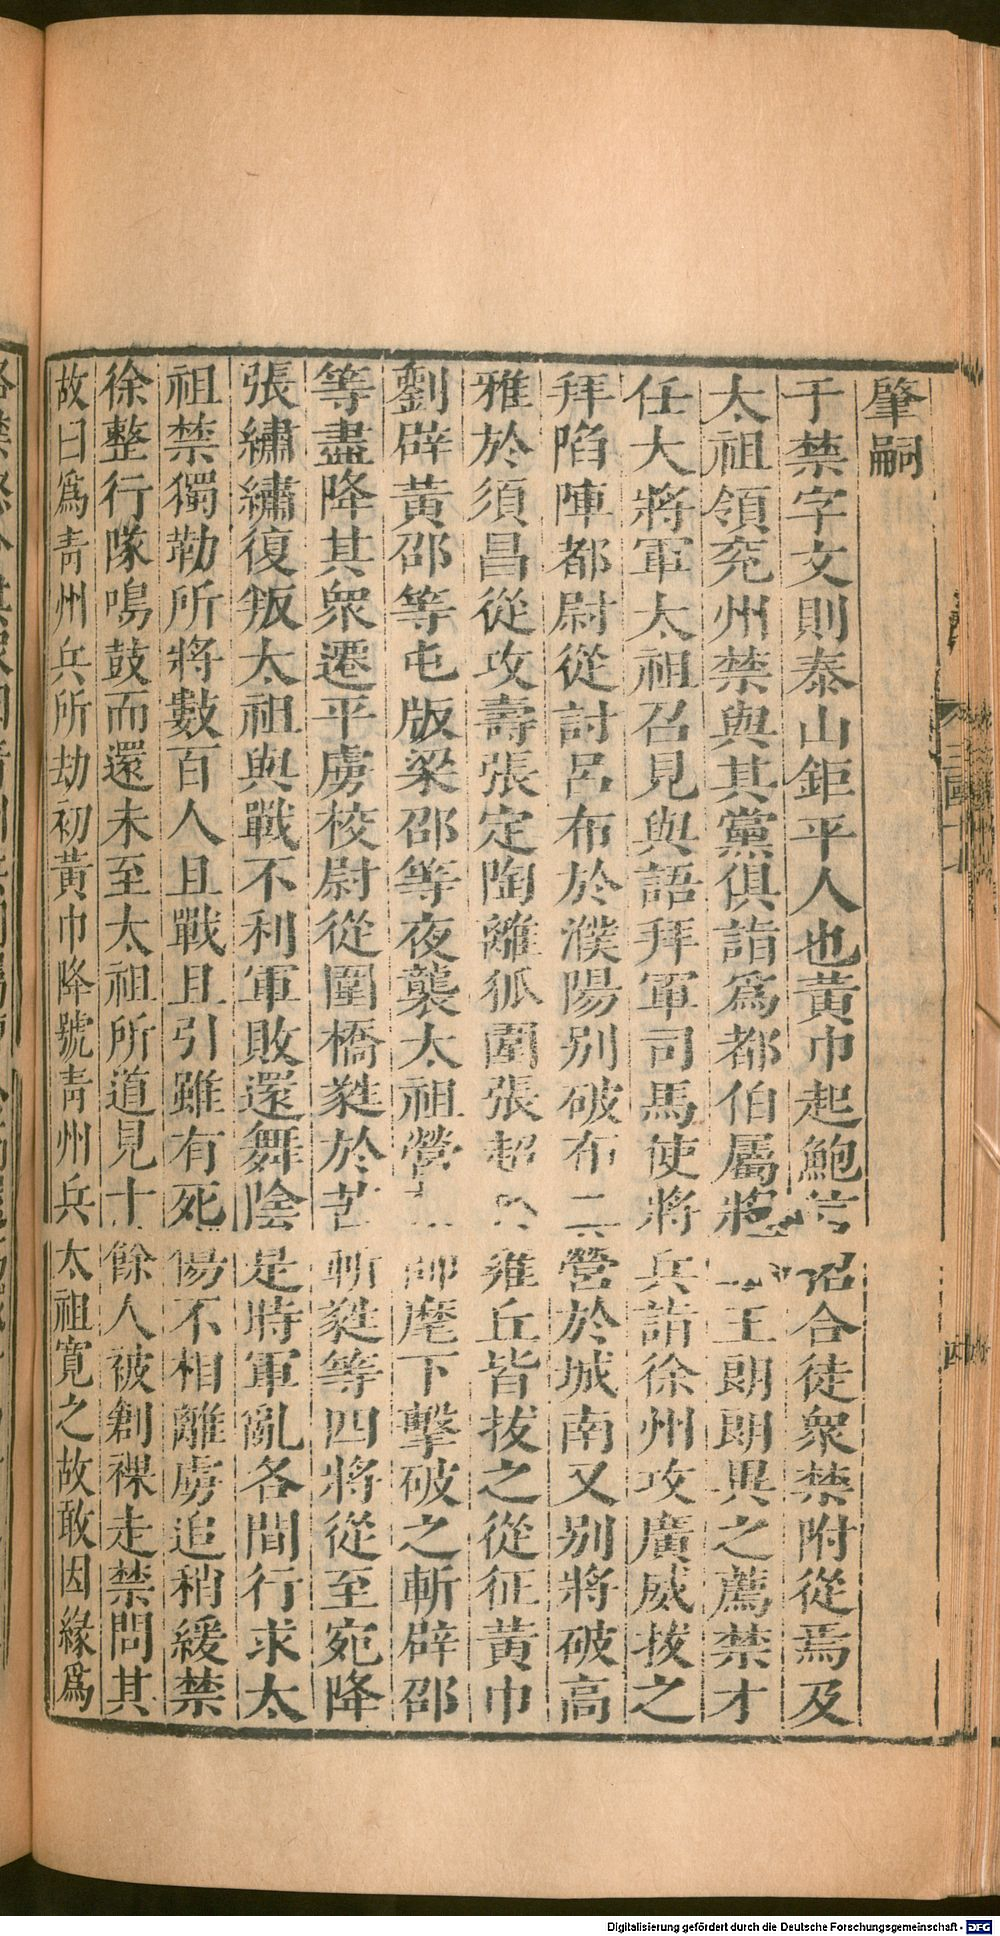 肇嗣
于禁字文則泰山鉅平人也黃巾起鮑信招合徒衆禁附從焉及
太祖領兖州禁與其黨俱詣爲都伯屬將王朗朗異之薦禁才
任大將軍太祖召見與語拜軍司馬使將兵詣徐州攻廣威拔之
拜陷陣都尉從討呂布於濮陽別破布二營於城南又別將破高
雅於須昌從攻壽張定陶離狐圍張超雍丘皆拔之從征黃巾
劉辟黃邵等屯版梁邵等夜襲太祖營師麾下擊破之斬辟邵
等盡降其衆遷平虜校尉從圍橋蕤於苦斬蕤等四將從至宛降
張繡繡復叛太祖與戰不利軍敗還舞陰是時軍亂各間行求太
祖禁獨勒所將數百人且戰且引雖有死傷不相離虜追稍緩禁
徐整行隊鳴鼓而還未至太祖所道見十餘人被創裸走禁問其
故曰爲青州兵所劫初黃巾降號青州兵太祖寬之故敢因緣爲
三國十七
四
Digitalisierung gefördert durch die Deutsche Forschungsgemeinschaft - DFG